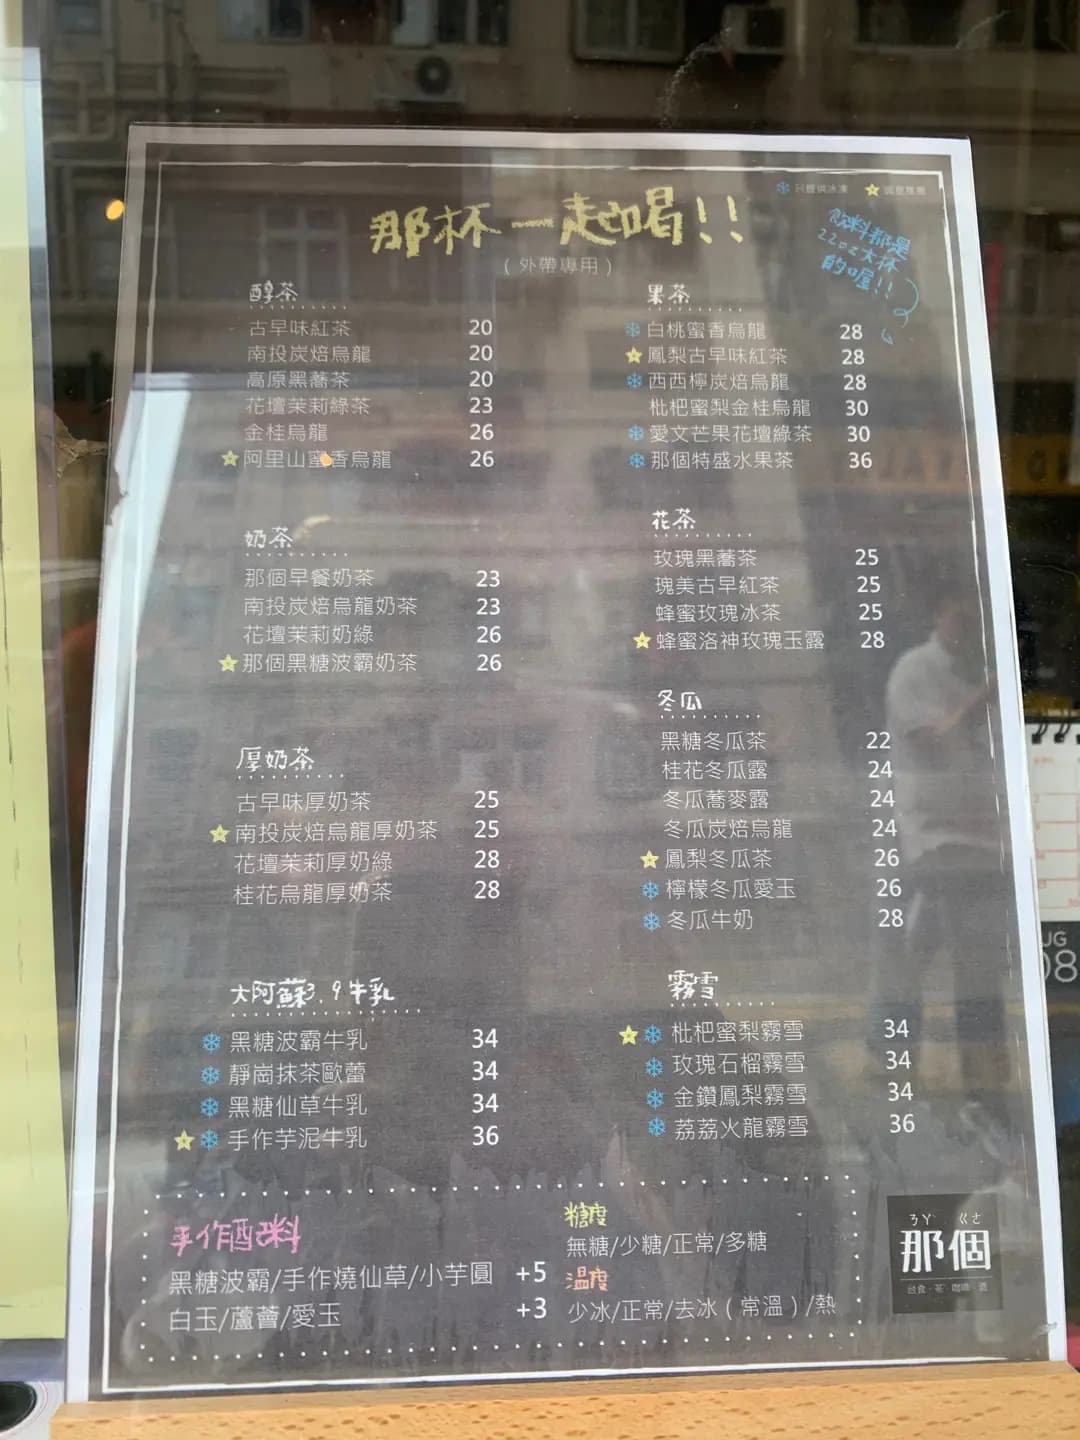 只提供冰凍
那杯一起喝!!
(外帶專用)
飲料都是
22oz大杯
的喔!!
醇茶
古早味紅茶 20
南投炭焙烏龍 20
高原黑蕎茶 20
花壇茉莉綠茶 23
金桂烏龍 26
阿里山蜜香烏龍 26
奶茶
那個早餐奶茶 23
南投炭焙烏龍奶茶 23
花壇茉莉奶綠 26
那個黑糖波霸奶茶 26
厚奶茶
古早味厚奶茶 25
南投炭焙烏龍厚奶茶 25
花壇茉莉厚奶綠 28
桂花烏龍厚奶茶 28
大阿蘇3.9牛乳
黑糖波霸牛乳 34
靜崗抹茶歐蕾 34
黑糖仙草牛乳 34
手作芋泥牛乳 36
果茶
白桃蜜香烏龍 28
鳳梨古早味紅茶 28
西西檸炭焙烏龍 28
枇杷蜜梨金桂烏龍 30
愛文芒果花壇綠茶 30
那個特盛水果茶 36
花茶
玫瑰黑蕎茶 25
瑰美古早紅茶 25
蜂蜜玫瑰冰茶 25
蜂蜜洛神玫瑰玉露 28
冬瓜
黑糖冬瓜茶 22
桂花冬瓜露 24
冬瓜蕎麥露 24
冬瓜炭焙烏龍 24
鳳梨冬瓜茶 26
檸檬冬瓜愛玉 26
冬瓜牛奶 28
霧雪
枇杷蜜梨霧雪 34
玫瑰石榴霧雪 34
金鑽鳳梨霧雪 34
荔荔火龍霧雪 36
手作配料
黑糖波霸/手作燒仙草/小芋圓 +5
白玉/蘆薈/愛玉 +3
糖度
無糖/少糖/正常/多糖
溫度
少冰/正常/去冰(常溫)/熱
ㄋㄚˋ ㄍㄜ
那個
台食·茶·咖啡·酒
UG
08